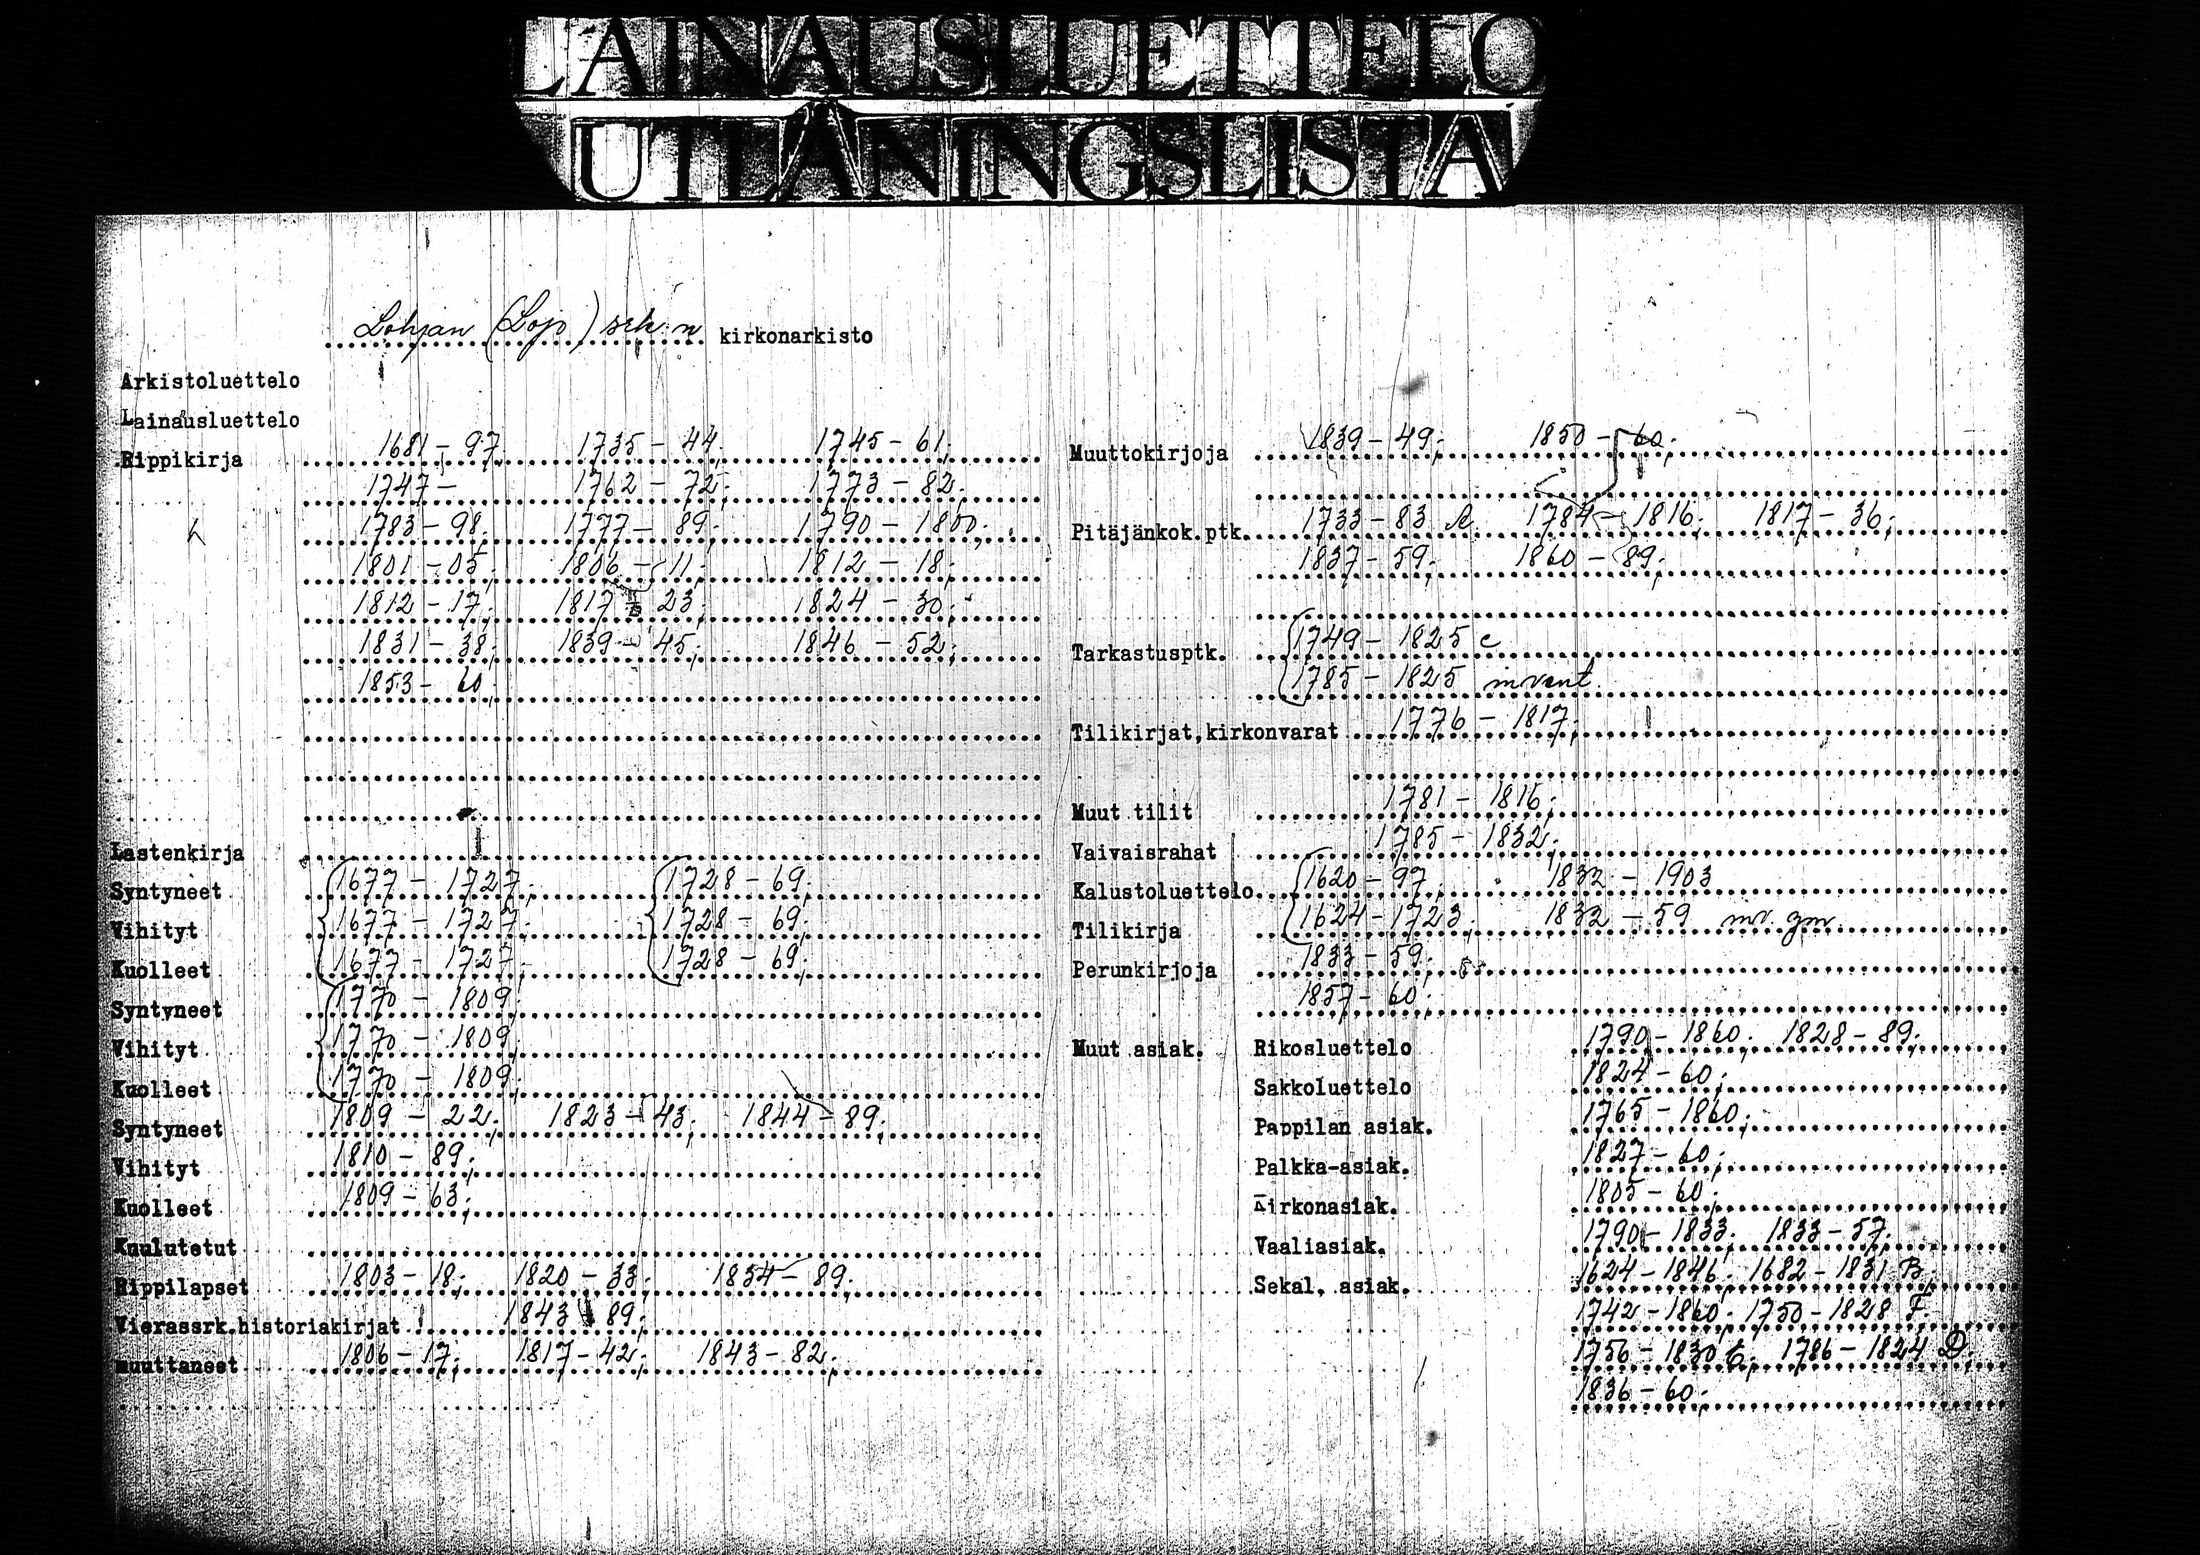 LAINAUSLUETTELO
UTLÅNINGSLISTA
Lohjan (Lojo) srk:n kirkonarkisto
Arkistoluettelo
Lainausluettelo
Rippikirja 1681 - 97 1735 - 44; 1745 - 61;
1747 - 1762 - 72; 1773 - 82;
1783 - 98; 1777 - 89; 1790 - 1800;
1801 - 05; 1806 - 11; 1812 - 18;
1812 - 17; 1817 - 23; 1824 - 30;
1831 - 38; 1839 - 45; 1846 - 52;
1853 - 60;
Lastenkirja
Syntyneet 1677 - 1727; 1728 - 69;
Vihityt 1677 - 1727; 1728 - 69;
Kuolleet 1677 - 1727; 1728 - 69;
Syntyneet 1770 - 1809;
Vihityt 1770 - 1809;
Kuolleet 1770 - 1809;
Syntyneet 1809 - 22; 1823 - 43; 1844 - 89;
Vihityt 1810 - 89;
Kuolleet 1809 - 63;
Kuulutetut
Rippilapset 1803 - 18; 1820 - 33; 1854 - 89;
Vierassrk.historiakirjat 1843 - 89;
muuttaneet 1806 - 17; 1817 - 42; 1843 - 82;
Muuttokirjoja 1839 - 49; 1850 - 60;
Pitäjänkok.ptk. 1733 - 83 A 1784 - 1816; 1817 - 36;
1837 - 59; 1860 - 89;
Tarkastusptk. 1749 - 1825 c
1785 - 1825 invent.
Tilikirjat,kirkonvarat 1776 - 1817;
Muut tilit 1781 - 1816;
Vaivaisrahat 1785 - 1832;
Kalustoluettelo 1620 - 97 1832 - 1903
Tilikirja 1624 - 1723; 1832 - 59
Perunkirjoja 1833 - 59;
1857 - 60;
Muut asiak. Rikosluettelo 1790 - 1860; 1828 - 89;
Sakkoluettelo 1824 - 60;
Pappilan asiak. 1765 - 1860;
Palkka-asiak. 1827 - 60;
Kirkonasiak. 1805 - 60;
Vaaliasiak. 1790 - 1833; 1833 - 57;
Sekal. asiak. 1624 - 1846; 1682 - 1831 B;
1742 - 1860; 1750 - 1828 F.
1756 - 1830 1786 - 1824 D;
1836 - 60;